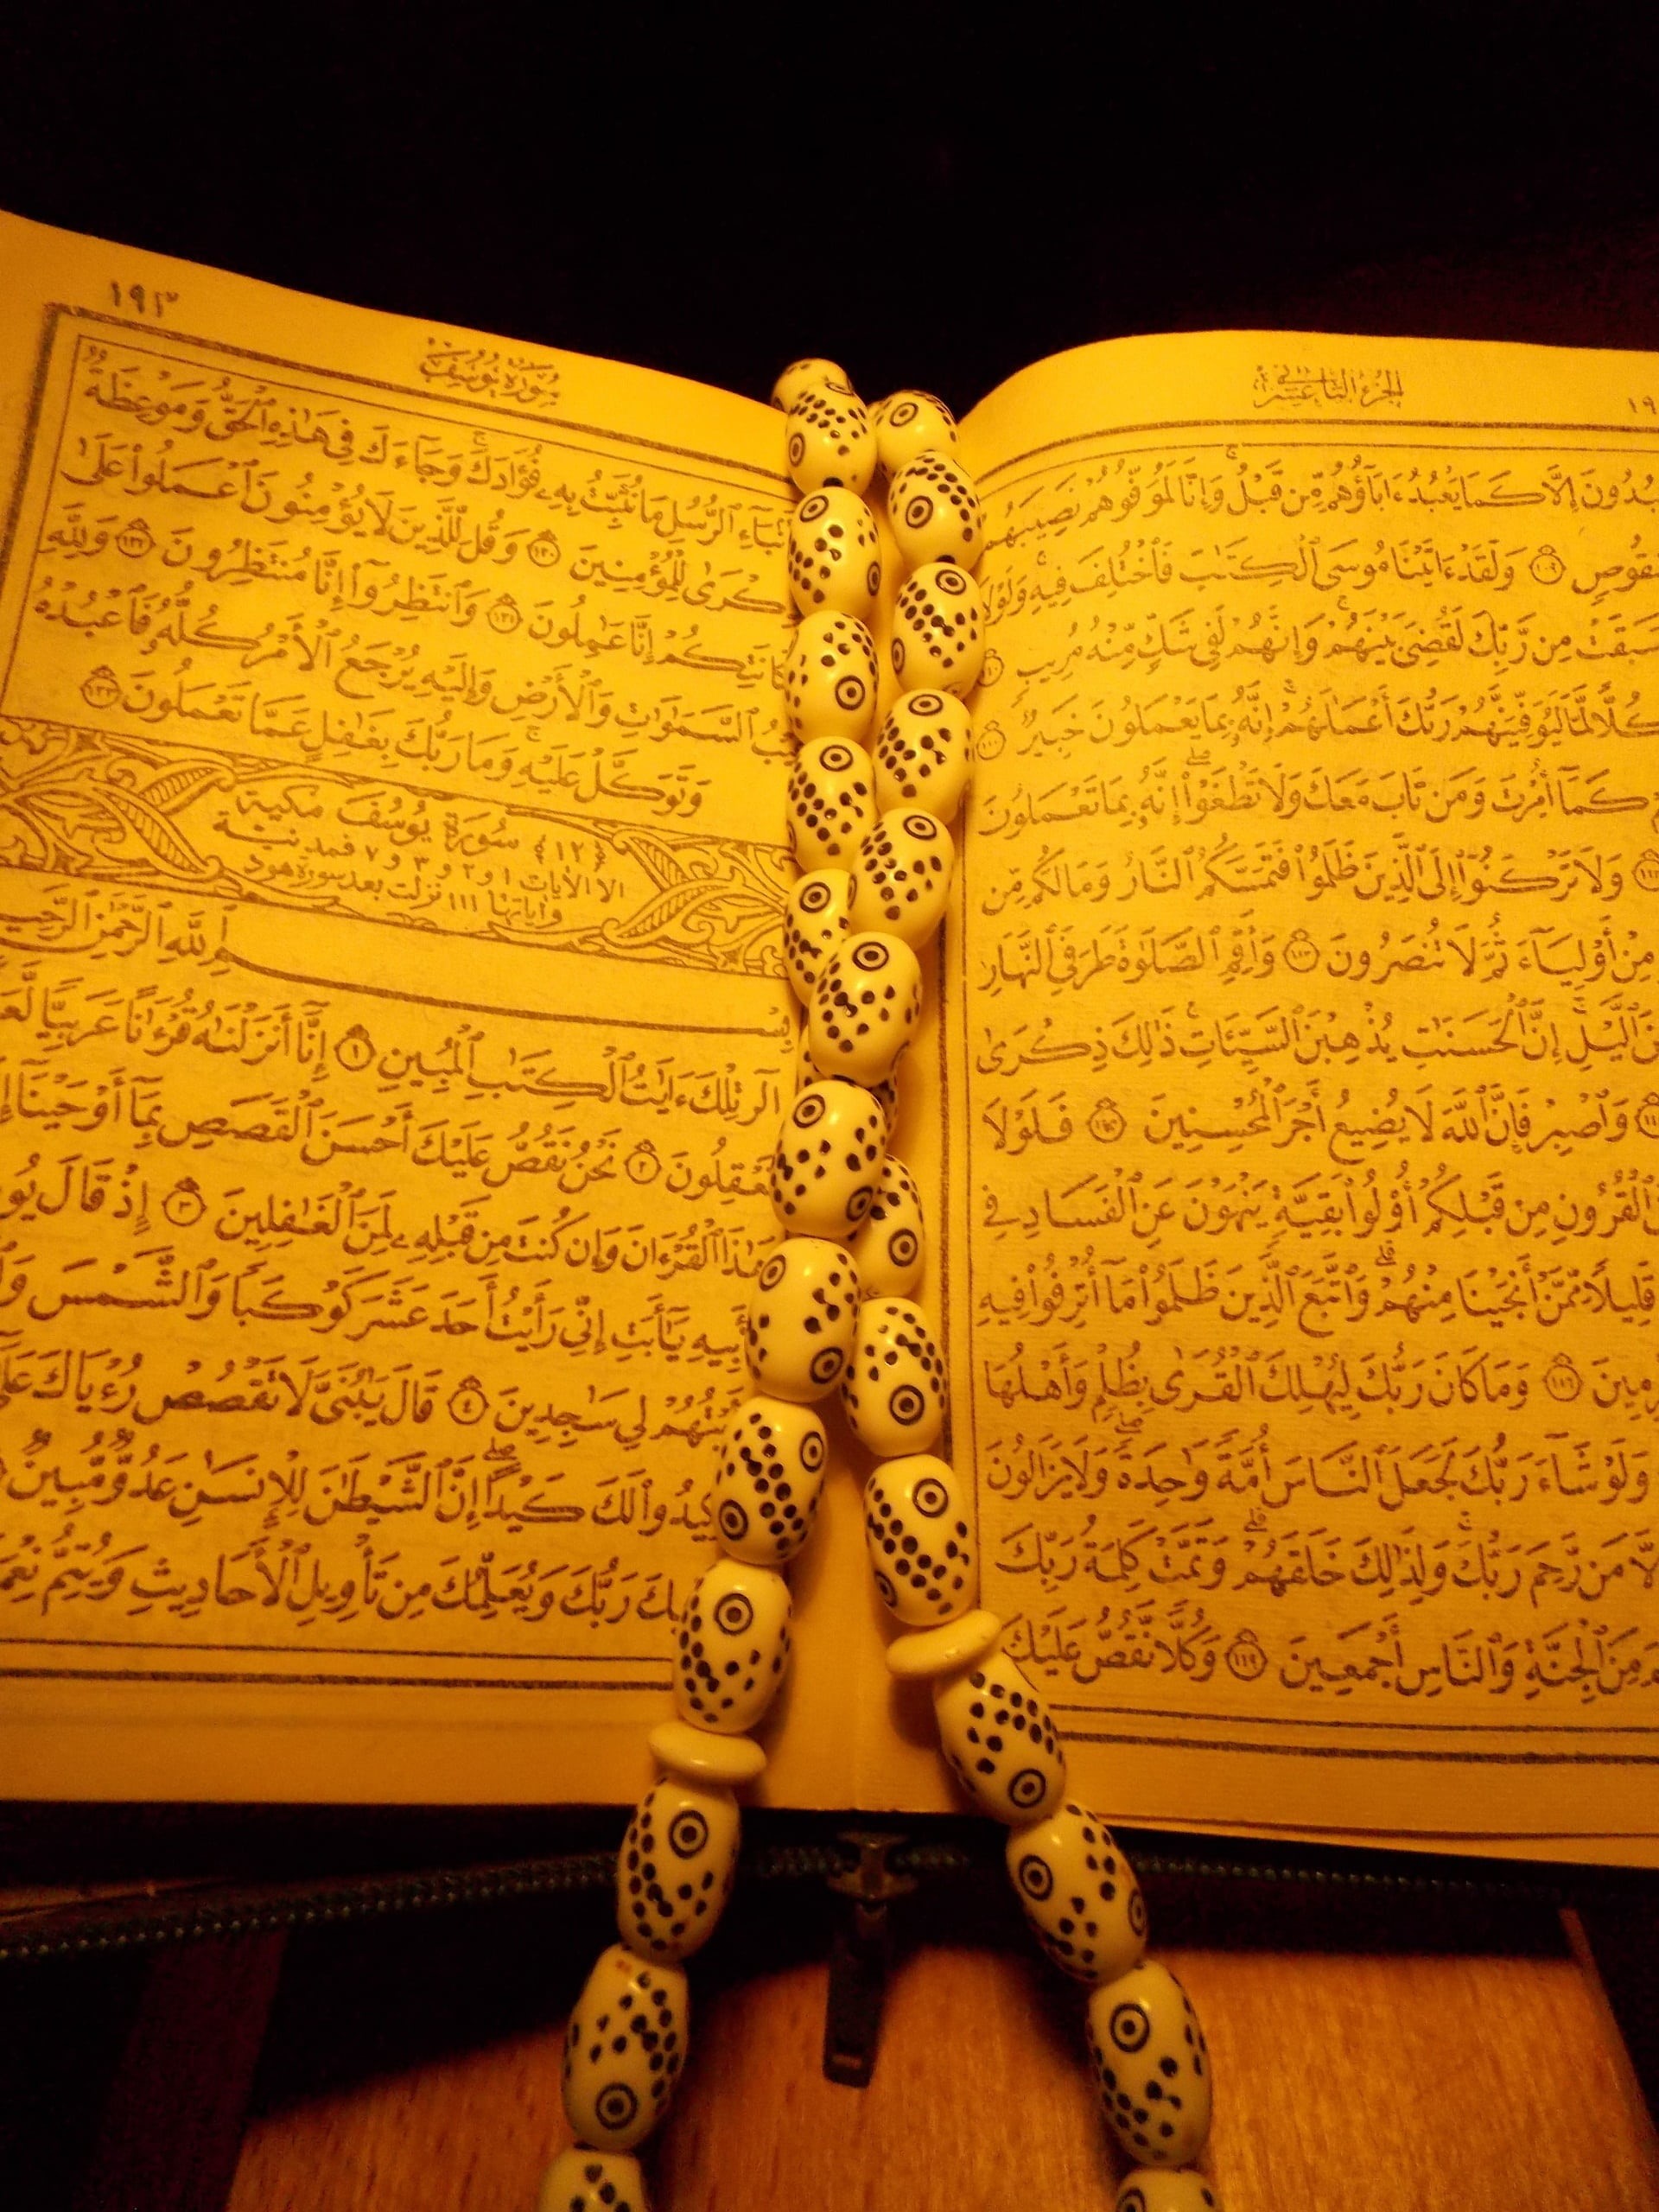 الجزء الثاني عشر
١٩
بُدُونَ إِلَّا كَمَا يَعْبُدُ ءَابَآؤُهُم مِّن قَبْلُ ۚ وَإِنَّا لَمُوَفُّوهُمْ نَصِيبَهُمْ
نقُوصٍ ١٠٩ وَلَقَدْ ءَاتَيْنَا مُوسَى ٱلْكِتَٰبَ فَٱخْتُلِفَ فِيهِ ۚ وَلَوْلَا
سَبَقَتْ مِن رَّبِّكَ لَقُضِىَ بَيْنَهُمْ ۚ وَإِنَّهُمْ لَفِى شَكٍّ مِّنْهُ مُرِيبٍ ١١٠
كُلًّا لَّمَّا لَيُوَفِّيَنَّهُمْ رَبُّكَ أَعْمَٰلَهُمْ ۚ إِنَّهُۥ بِمَا يَعْمَلُونَ خَبِيرٌ ١١١
كَمَآ أُمِرْتَ وَمَن تَابَ مَعَكَ وَلَا تَطْغَوْا۟ ۚ إِنَّهُۥ بِمَا تَعْمَلُونَ
١١٢ وَلَا تَرْكَنُوٓا۟ إِلَى ٱلَّذِينَ ظَلَمُوا۟ فَتَمَسَّكُمُ ٱلنَّارُ وَمَا لَكُم مِّن
مِنْ أَوْلِيَآءَ ثُمَّ لَا تُنصَرُونَ ١١٣ وَأَقِمِ ٱلصَّلَوٰةَ طَرَفَىِ ٱلنَّهَارِ
نَ ٱلَّيْلِ ۚ إِنَّ ٱلْحَسَنَٰتِ يُذْهِبْنَ ٱلسَّيِّـَٔاتِ ۚ ذَٰلِكَ ذِكْرَىٰ
١١٤ وَٱصْبِرْ فَإِنَّ ٱللَّهَ لَا يُضِيعُ أَجْرَ ٱلْمُحْسِنِينَ ١١٥ فَلَوْلَا
ٱلْقُرُونِ مِن قَبْلِكُمْ أُو۟لُوا۟ بَقِيَّةٍ يَنْهَوْنَ عَنِ ٱلْفَسَادِ فِى
قَلِيلًا مِّمَّنْ أَنجَيْنَا مِنْهُمْ ۗ وَٱتَّبَعَ ٱلَّذِينَ ظَلَمُوا۟ مَآ أُتْرِفُوا۟ فِيهِ
رِمِينَ ١١٦ وَمَا كَانَ رَبُّكَ لِيُهْلِكَ ٱلْقُرَىٰ بِظُلْمٍ وَأَهْلُهَا
وَلَوْ شَآءَ رَبُّكَ لَجَعَلَ ٱلنَّاسَ أُمَّةً وَٰحِدَةً ۖ وَلَا يَزَالُونَ
لَّا مَن رَّحِمَ رَبُّكَ ۚ وَلِذَٰلِكَ خَلَقَهُمْ ۗ وَتَمَّتْ كَلِمَةُ رَبِّكَ
مِنَ ٱلْجِنَّةِ وَٱلنَّاسِ أَجْمَعِينَ ١١٩ وَكُلًّا نَّقُصُّ عَلَيْكَ
سورة يوسف
١٩٣
نۢبَآءِ ٱلرُّسُلِ مَا نُثَبِّتُ بِهِۦ فُؤَادَكَ ۚ وَجَآءَكَ فِى هَٰذِهِ ٱلْحَقُّ وَمَوْعِظَةٌ
كْرَىٰ لِلْمُؤْمِنِينَ ١٢٠ وَقُل لِّلَّذِينَ لَا يُؤْمِنُونَ ٱعْمَلُوا۟ عَلَىٰ
كَانَتِكُمْ إِنَّا عَٰمِلُونَ ١٢١ وَٱنتَظِرُوٓا۟ إِنَّا مُنتَظِرُونَ ١٢٢ وَلِلَّهِ
يْبُ ٱلسَّمَٰوَٰتِ وَٱلْأَرْضِ وَإِلَيْهِ يُرْجَعُ ٱلْأَمْرُ كُلُّهُۥ فَٱعْبُدْهُ
وَتَوَكَّلْ عَلَيْهِ ۚ وَمَا رَبُّكَ بِغَٰفِلٍ عَمَّا تَعْمَلُونَ ١٢٣
﴿١٢﴾ سُورَة يُوسُفَ مكية
الا الآيات ١ و٢ و٣ و٧ فمدنية
وآياتها ١١١ نزلت بعد سورة هود
بِسْمِ ٱللَّهِ ٱلرَّحْمَٰنِ ٱلرَّحِي
الٓر ۚ تِلْكَ ءَايَٰتُ ٱلْكِتَٰبِ ٱلْمُبِينِ ١ إِنَّآ أَنزَلْنَٰهُ قُرْءَٰنًا عَرَبِيًّا لَّعَ
تَعْقِلُونَ ٢ نَحْنُ نَقُصُّ عَلَيْكَ أَحْسَنَ ٱلْقَصَصِ بِمَآ أَوْحَيْنَآ إِ
هَٰذَا ٱلْقُرْءَانَ وَإِن كُنتَ مِن قَبْلِهِۦ لَمِنَ ٱلْغَٰفِلِينَ ٣ إِذْ قَالَ يُو
أَبِيهِ يَٰٓأَبَتِ إِنِّى رَأَيْتُ أَحَدَ عَشَرَ كَوْكَبًا وَٱلشَّمْسَ وَٱ
يْتُهُمْ لِى سَٰجِدِينَ ٤ قَالَ يَٰبُنَىَّ لَا تَقْصُصْ رُءْيَاكَ عَلَ
كِيدُوا۟ لَكَ كَيْدًا ۖ إِنَّ ٱلشَّيْطَٰنَ لِلْإِنسَٰنِ عَدُوٌّ مُّبِينٌ
بِيكَ رَبُّكَ وَيُعَلِّمُكَ مِن تَأْوِيلِ ٱلْأَحَادِيثِ وَيُتِمُّ نِعْمَ